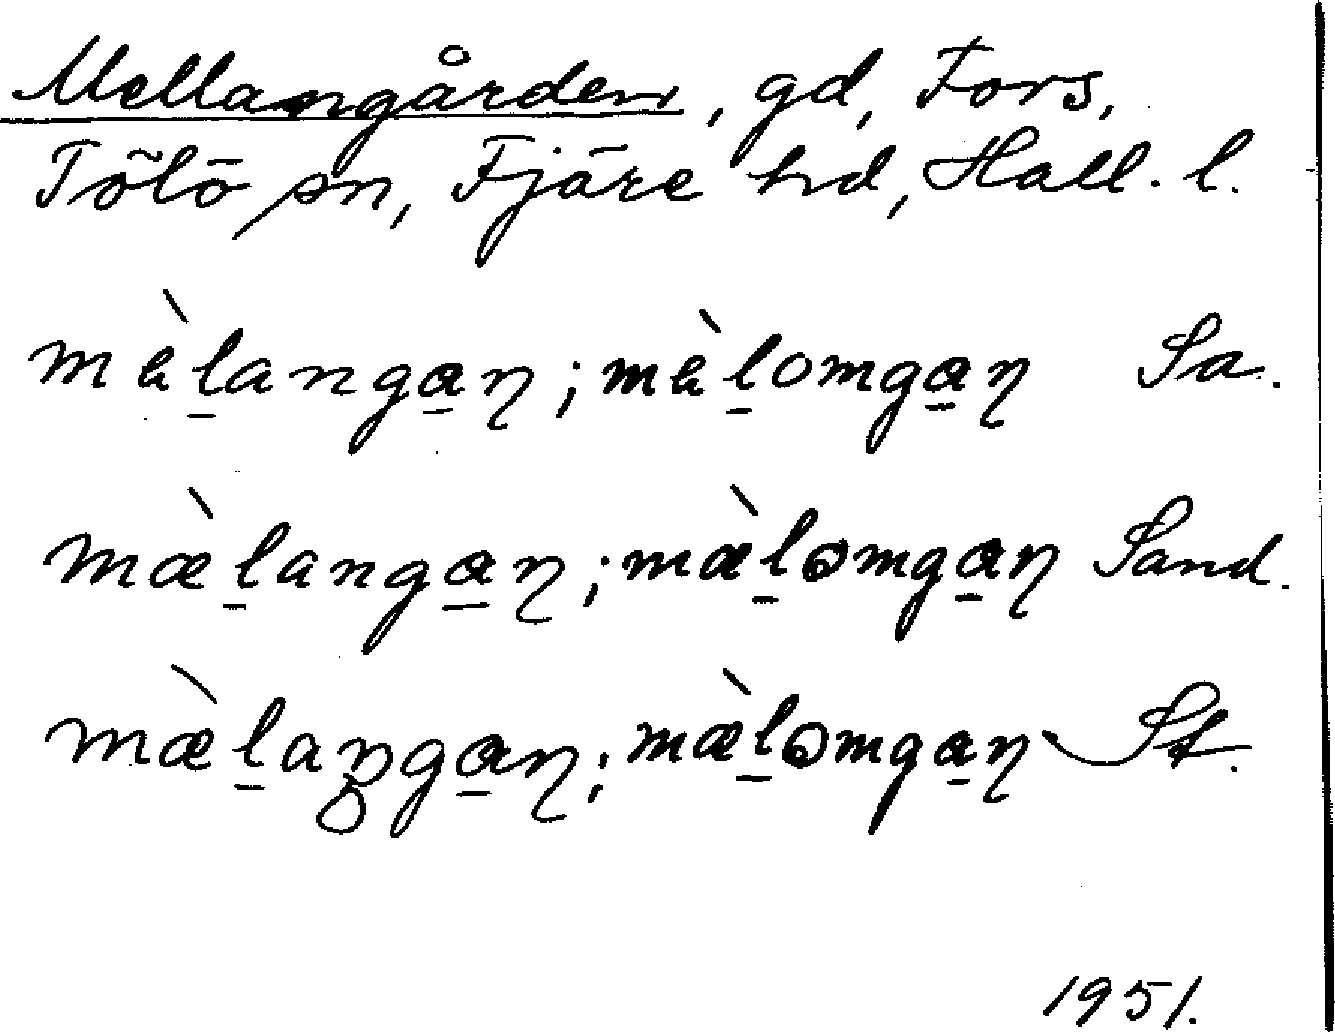 Mellangården, gd, Fors,
Tölö sn, Fjäre hd, Hall. l.
mὲ̀l̲anga̲ɳ; mὲ̀l̲omga̲ɳ Sa.
mæ̀l̲anga̲ɳ; mæ̀l̲ɷmga̲ɳ Sand.
mæ̀l̲aŋga̲ɳ; mæ̀l̲ɷmga̲ɳ St.
1951.